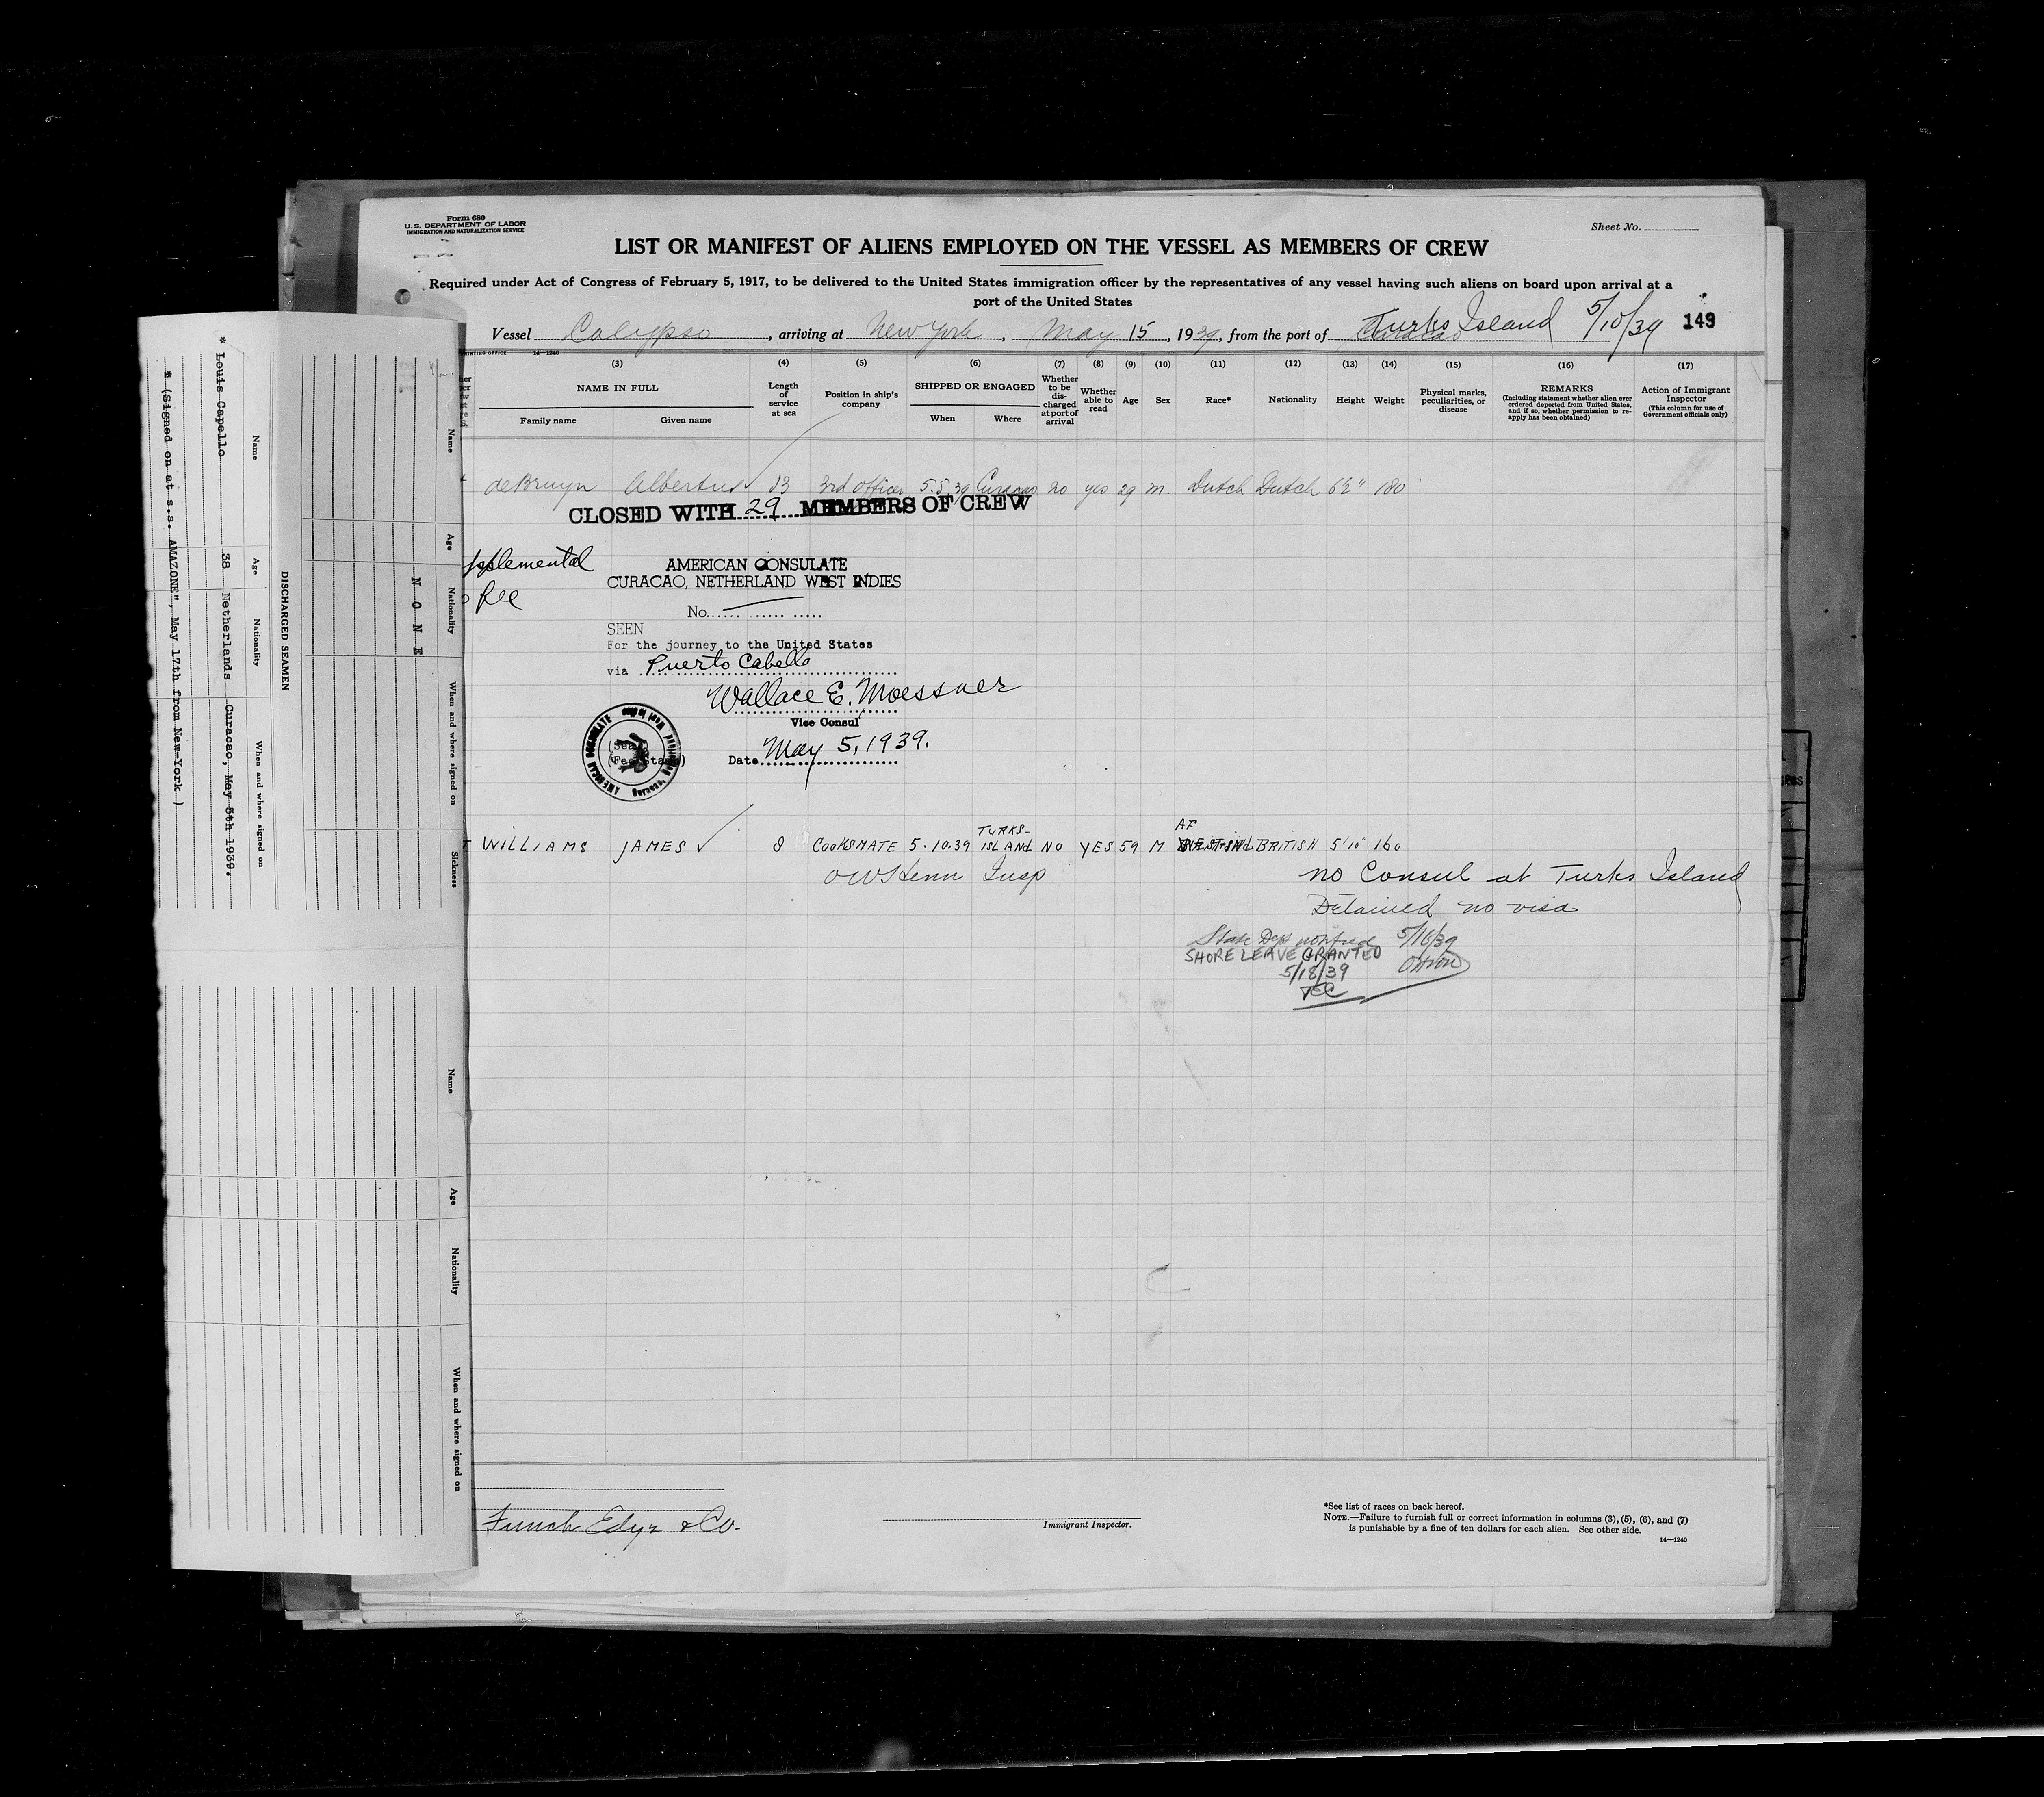 Form 680
U. S. DEPARTMENT OF LABOR
IMMIGRATION AND NATURALIZATION SERVICE
Sheet No.
LIST OR MANIFEST OF ALIENS EMPLOYED ON THE VESSEL AS MEMBERS OF CREW
Required under Act of Congress of February 5, 1917, to be delivered to the United States immigration officer by the representatives of any vessel having such aliens on board upon arrival at a
port of the United States
Vessel Calypso, arriving at New York, May 15, 1939, from the port of Curacao Turks Island 5/10/39 149
PRINTING OFFICE 14—1240
(3) (4) (5) (6) (7) (8) (9) (10) (11) (12) (13) (14) (15) (16) (17)
NAME IN FULL
Family name Given name
Length of service at sea
Position in ship's company
SHIPPED OR ENGAGED
When Where
Whether to be discharged at port of arrival
Whether able to read
Age
Sex
Race*
Nationality
Height
Weight
Physical marks, peculiarities, or disease
REMARKS
(Including statement whether alien ever ordered deported from United States, and if so, whether permission to reapply has been obtained)
Action of Immigrant Inspector
(This column for use of Government officials only)
deBruyn Albertus 13 3rd Officer 5.5.39 Curacao no yes 29 m. Dutch Dutch 6'2" 180
CLOSED WITH 29 MEMBERS OF CREW
pplemental
o fee
AMERICAN CONSULATE
CURACAO, NETHERLAND WEST INDIES
No.
SEEN
For the journey to the United States
via Puerto Cabello
Wallace E. Moessner
Vice Consul
(Seal)
(Fee Stamp)
AMERICAN CONSULATE
Date May 5, 1939.
WILLIAMS JAMES 8 COOKSMATE 5.10.39 TURKS-ISLAND NO YES 59 M AF WEST-IND. BRITISH 5'10" 160
Insp
no Consul at Turks Island
Detained no visa
State Dept notified 5/16/39
SHORE LEAVE GRANTED
5/18/39
Funch Edye & Co.
Immigrant Inspector.
*See list of races on back hereof.
NOTE.—Failure to furnish full or correct information in columns (3), (5), (6), and (7)
is punishable by a fine of ten dollars for each alien. See other side.
14—1240
Name Age Nationality When and where signed on Sickness
N O N E
DISCHARGED SEAMEN
Name Age Nationality When and where signed on
* Louis Capello 38 Netherlands Curacao, May 5th 1939.
* (Signed on at s.s. AMAZONE", May 17th from New-York )
Name Age Nationality When and where signed on